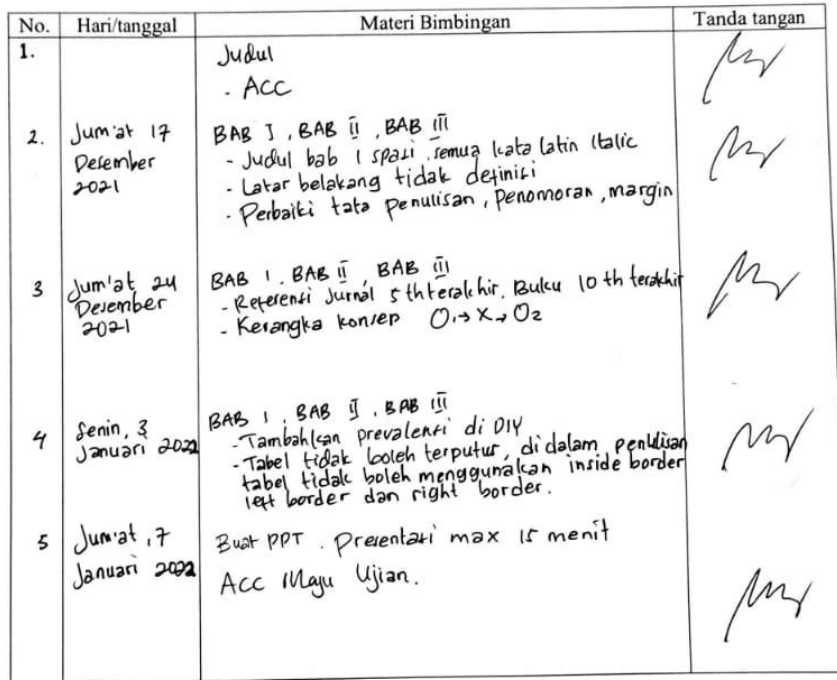 No. Hari/tanggal Materi Bimbingan Tanda tangan
1. Judul
- ACC
2. Jum'at 17 Desember 2021
BAB I, BAB II, BAB III
- Judul bab 1 spasi, semua kata latin italic
- Latar belakang tidak definisi
- Perbaiki tata penulisan, penomoran, margin
3 Jum'at 24 Desember 2021
BAB I. BAB II, BAB III
- Referensi Jurnal 5 th terakhir, Buku 10 th terakhir
- Kerangka konsep O1→X→O2
4 Senin, 3 Januari 2022
BAB I, BAB II, BAB III
- Tambahkan prevalensi di DIY
- Tabel tidak boleh terputus, di dalam penulisan
tabel tidak boleh menggunakan inside border
left border dan right border.
5 Jum'at, 7 Januari 2022
Buat PPT. Presentasi max 15 menit
ACC Maju Ujian.